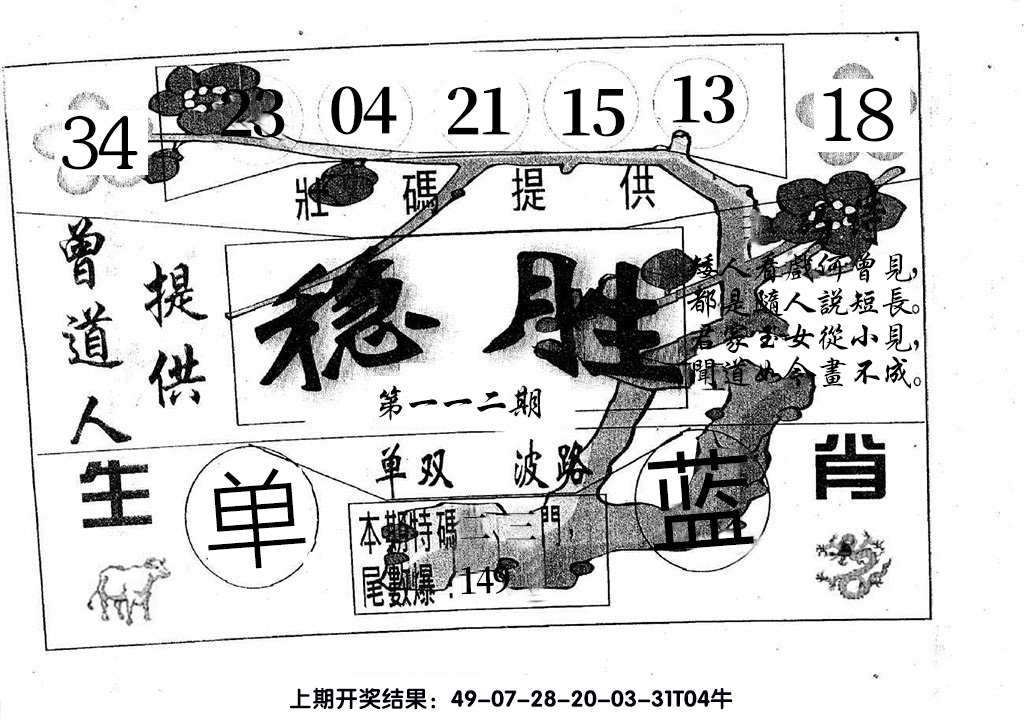 34 23 04 21 15 13 18
壯碼提供
曾道人
提供
稳胜
第一一二期
特
矮人看戲何曾見，
都是隨人説短長。
君家玉女從小見，
聞道如今畫不成。
单双 波路
生肖
单
蓝
本期特碼二、三門，
尾數爆：149
上期开奖结果：49-07-28-20-03-31T04牛